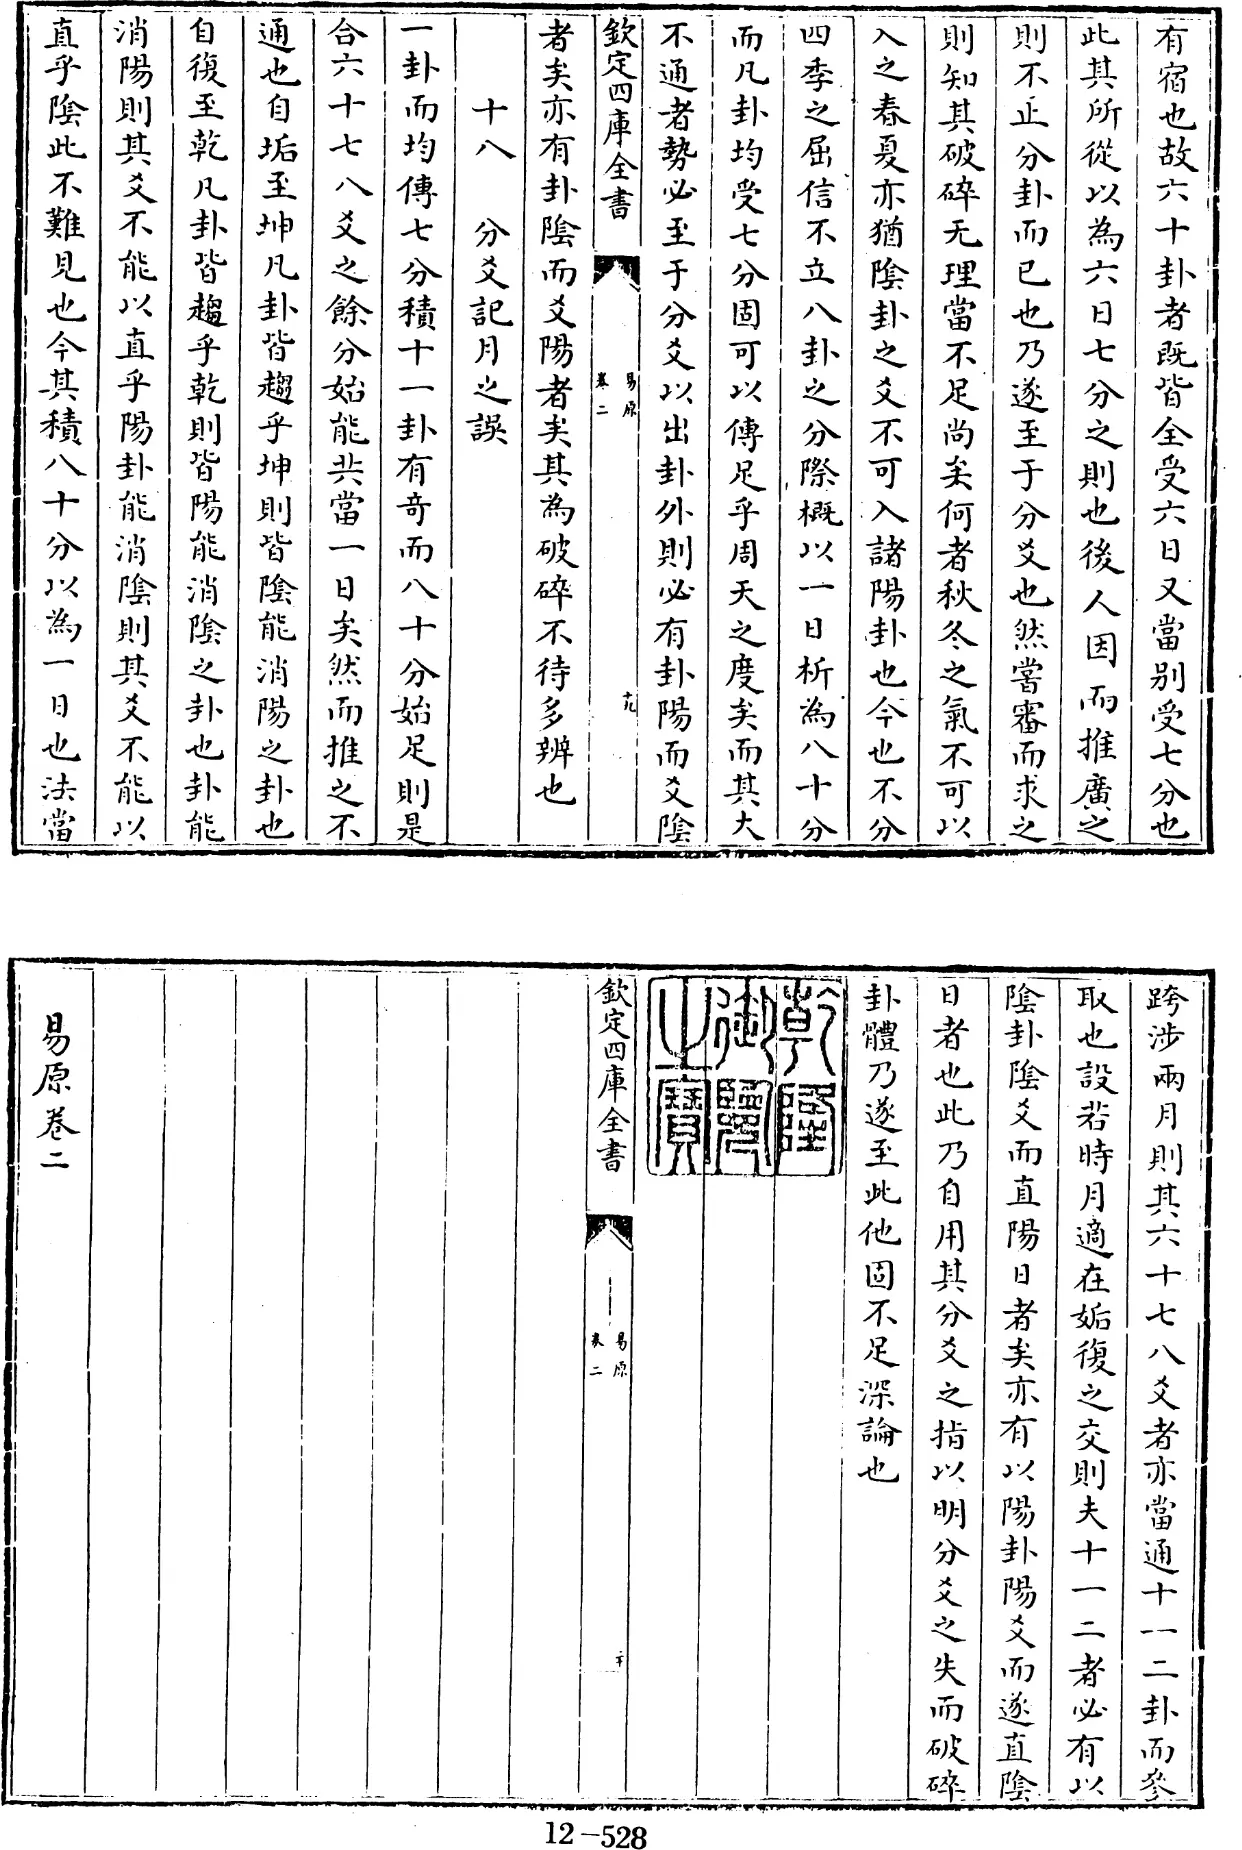 有宿也故六十卦者既皆全受六日又當别受七分也
此其所從以為六日七分之則也後人因而推廣之
則不止分卦而已也乃遂至于分爻也然嘗審而求之
則知其破碎无理當不足尚矣何者秋冬之氣不可以
入之春夏亦猶陰卦之爻不可入諸陽卦也今也不分
四季之屈信不立八卦之分際概以一日析為八十分
而凡卦均受七分固可以傳足乎周天之度矣而其大
不通者勢必至于分爻以出卦外則必有卦陽而爻陰
欽定四庫全書
易原
卷二
十九
者矣亦有卦陰而爻陽者矣其為破碎不待多辨也
十八 分爻記月之誤
一卦而均傳七分積十一卦有奇而八十分始足則是
合六十七八爻之餘分始能共當一日矣然而推之不
通也自垢至坤凡卦皆趨乎坤則皆陰能消陽之卦也
自復至乾凡卦皆趨乎乾則皆陽能消陰之卦也卦能
消陽則其爻不能以直乎陽卦能消陰則其爻不能以
直乎陰此不難見也今其積八十分以為一日也法當
跨涉兩月則其六十七八爻者亦當通十一二卦而參
取也設若時月適在姤復之交則夫十一二者必有以
陰卦陰爻而直陽日者矣亦有以陽卦陽爻而遂直陰
日者也此乃自用其分爻之指以明分爻之失而破碎
卦體乃遂至此他固不足深論也
乾隆御覽之寶
欽定四庫全書
易原
卷二
二十
易原卷二
12-528